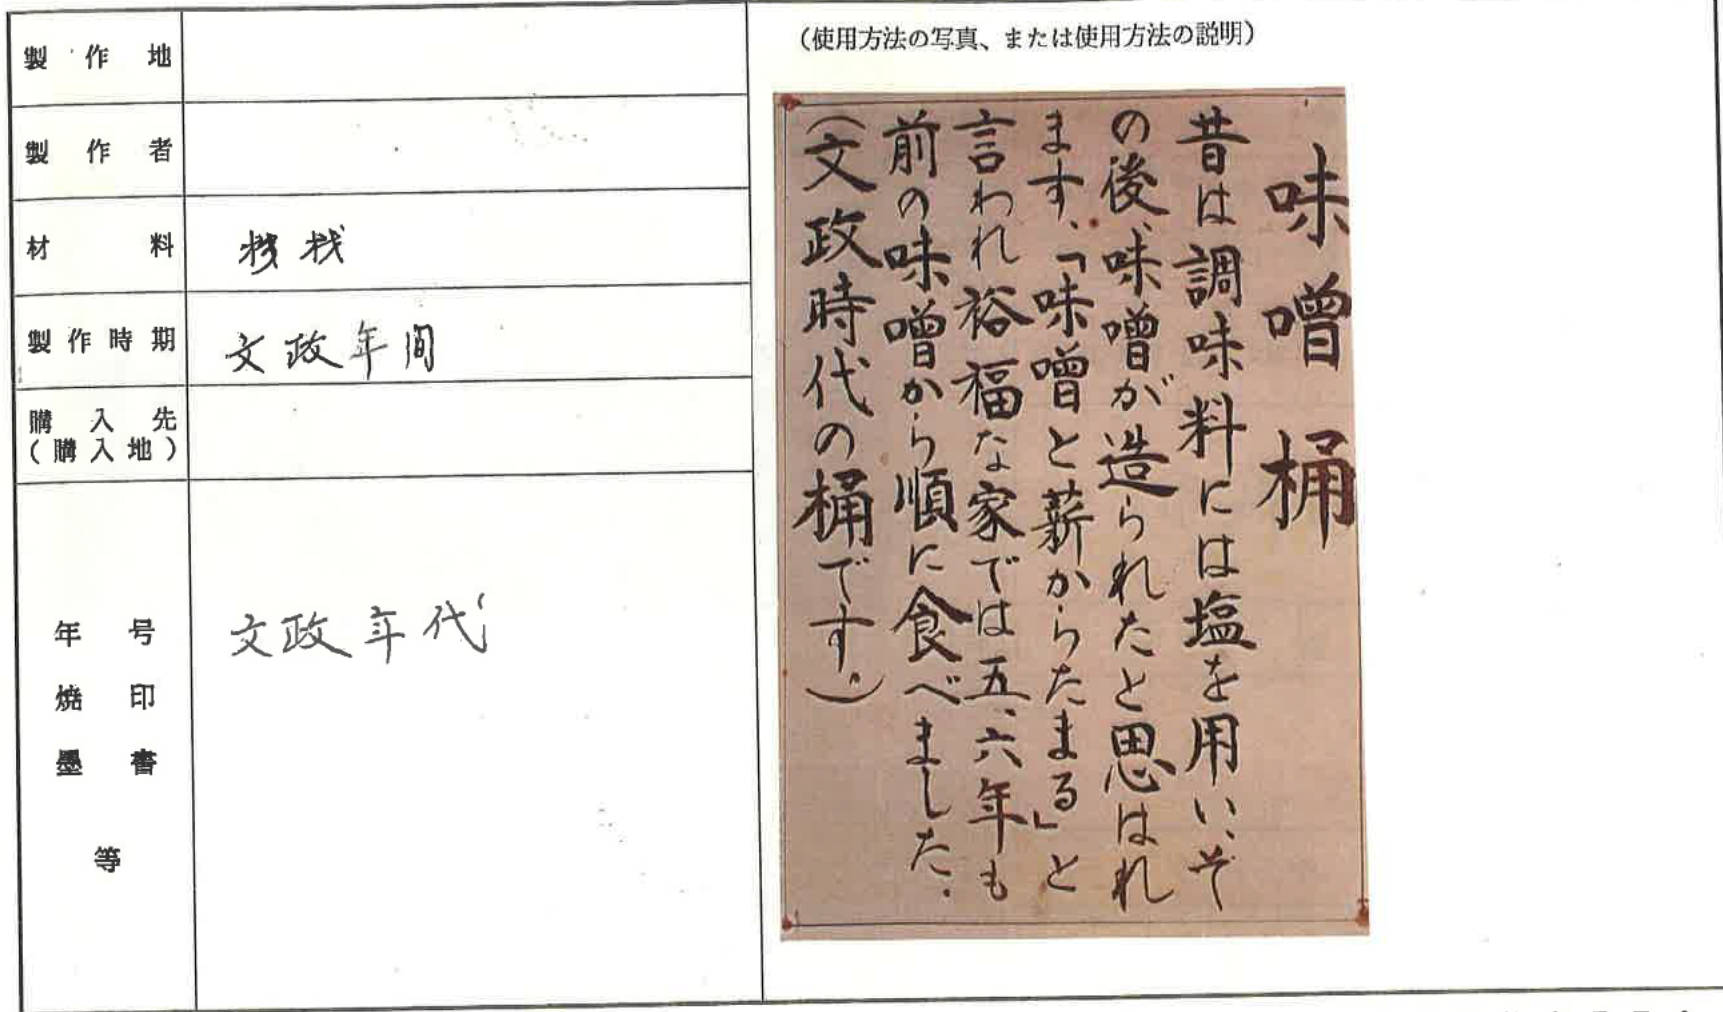 製作地
製作者
材料
製作時期
文政年間
購入先
(購入地)
年号
焼印
墨書
等
文政年代
(使用方法の写真、または使用方法の説明)
味噌桶
昔は調味料には塩を用い、そ
の後、味噌が造られたと思はれ
ます、「味噌と薪からたまる」と
言われ裕福な家では五、六年も
前の味噌から順に食べました。
(文政時代の桶です。)